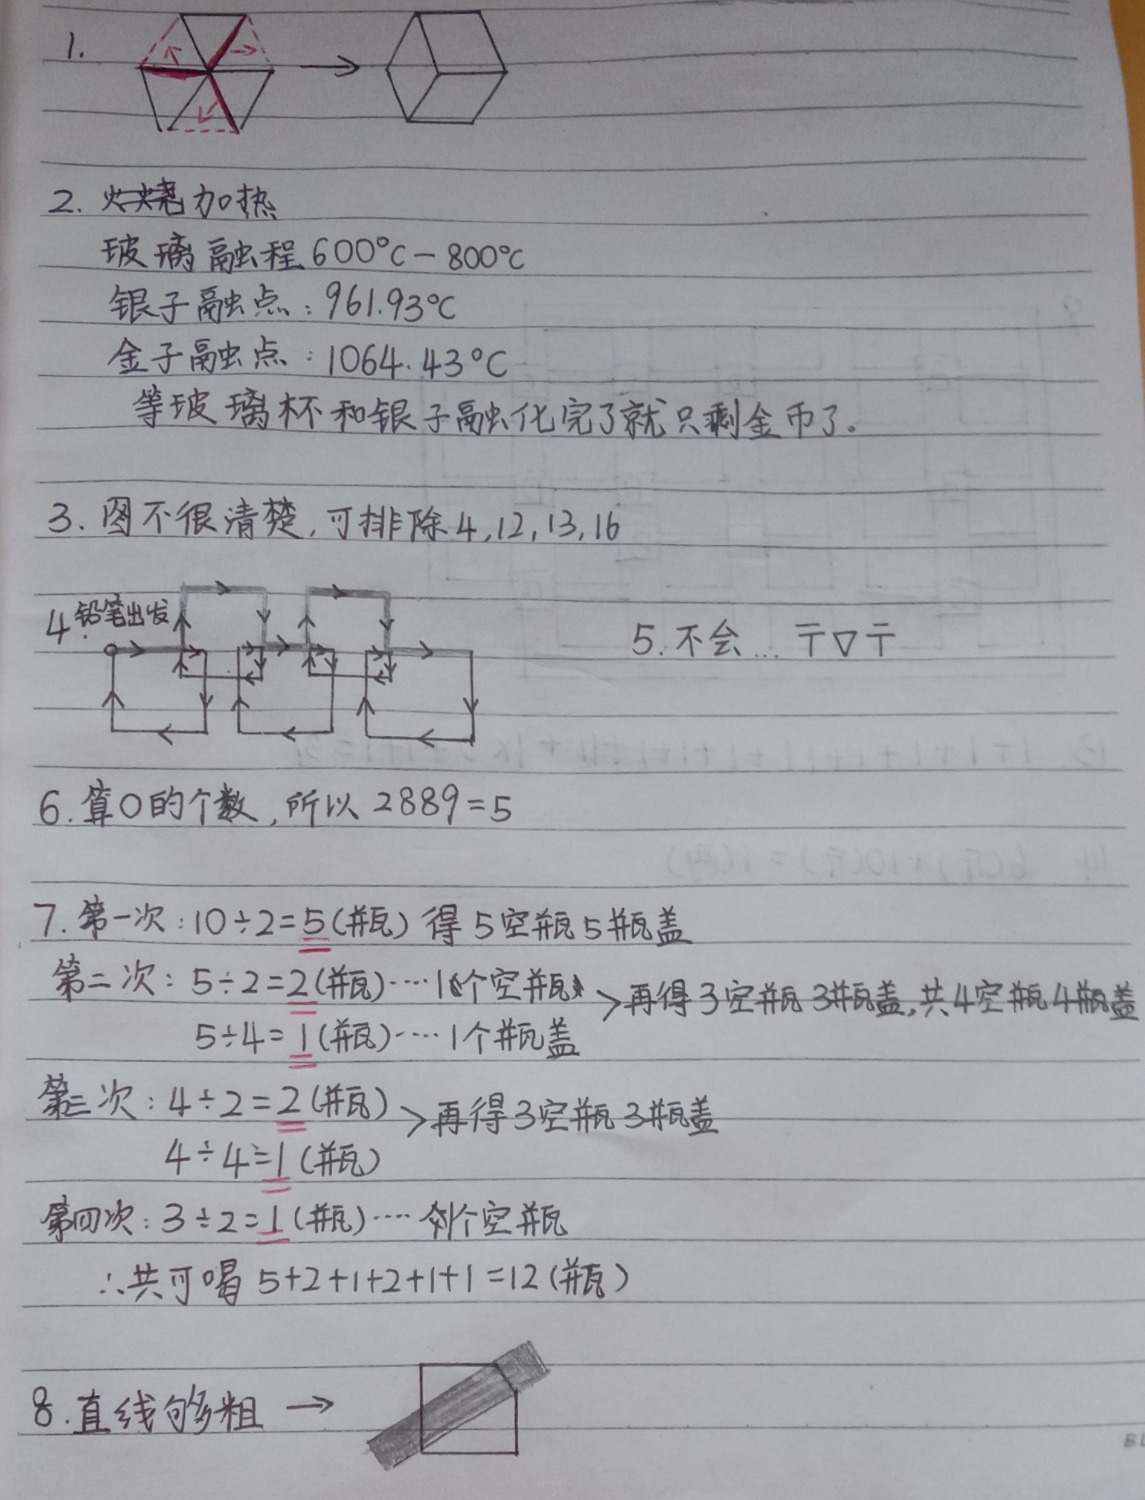 1.
2. 火烧加热
玻璃融程600°C-800°C
银子融点:961.93°C
金子融点:1064.43°C
等玻璃杯和银子融化完了就只剩金币了.
3. 图不很清楚,可排除4,12,13,16
4. 铅笔出发
5. 不会... 干▽干
6. 算0的个数,所以2889=5
7. 第一次:10÷2=5(瓶) 得5空瓶5瓶盖
第二次:5÷2=2(瓶)····1个空瓶
5÷4=1(瓶)····1个瓶盖
>再得3空瓶3瓶盖,共4空瓶4瓶盖
第三次:4÷2=2(瓶)
4÷4=1(瓶)
>再得3空瓶3瓶盖
第四次:3÷2=1(瓶)····剩个空瓶
∴共可喝5+2+1+2+1+1=12(瓶)
8. 直线够粗→